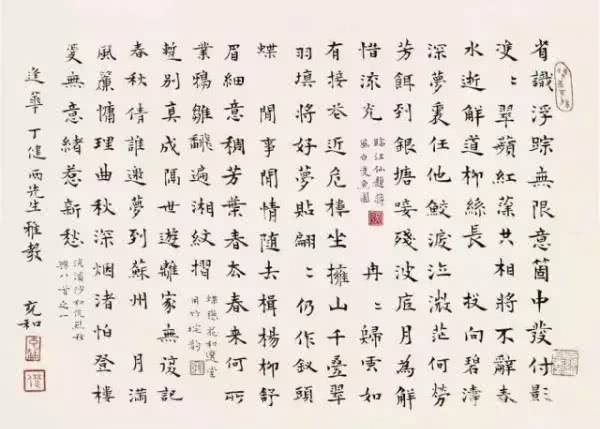 省識浮踪無限意箇中發付影
雙〻翠蘋紅藻共相將不辭春
水逝解道柳絲長 投向碧濤
深夢裏任他鮫淚泣微茫何勞
芳餌到銀塘唼殘波底月為解
惜流光
臨江仙題蔣
風白雙魚圖
冉〻歸雲如
有接卷近危樓坐擁山千疊翠
羽填將好夢貼翩〻仍作釵頭
蝶 閒事閒情隨去楫楊柳舒
眉細意稠芳葉春去春來何所
業鴉雛飜遍湘紋摺
蝶戀花和雙堂
用竹垞韵
蹔別真成隔世遊離家無復記
春秋倩誰邀夢到蘇州 月滿
風簾慵理曲秋深烟渚怕登樓
更無意緒惹新愁
浣溪沙
八首之一
逢華 丁健兩先生雅教 充和